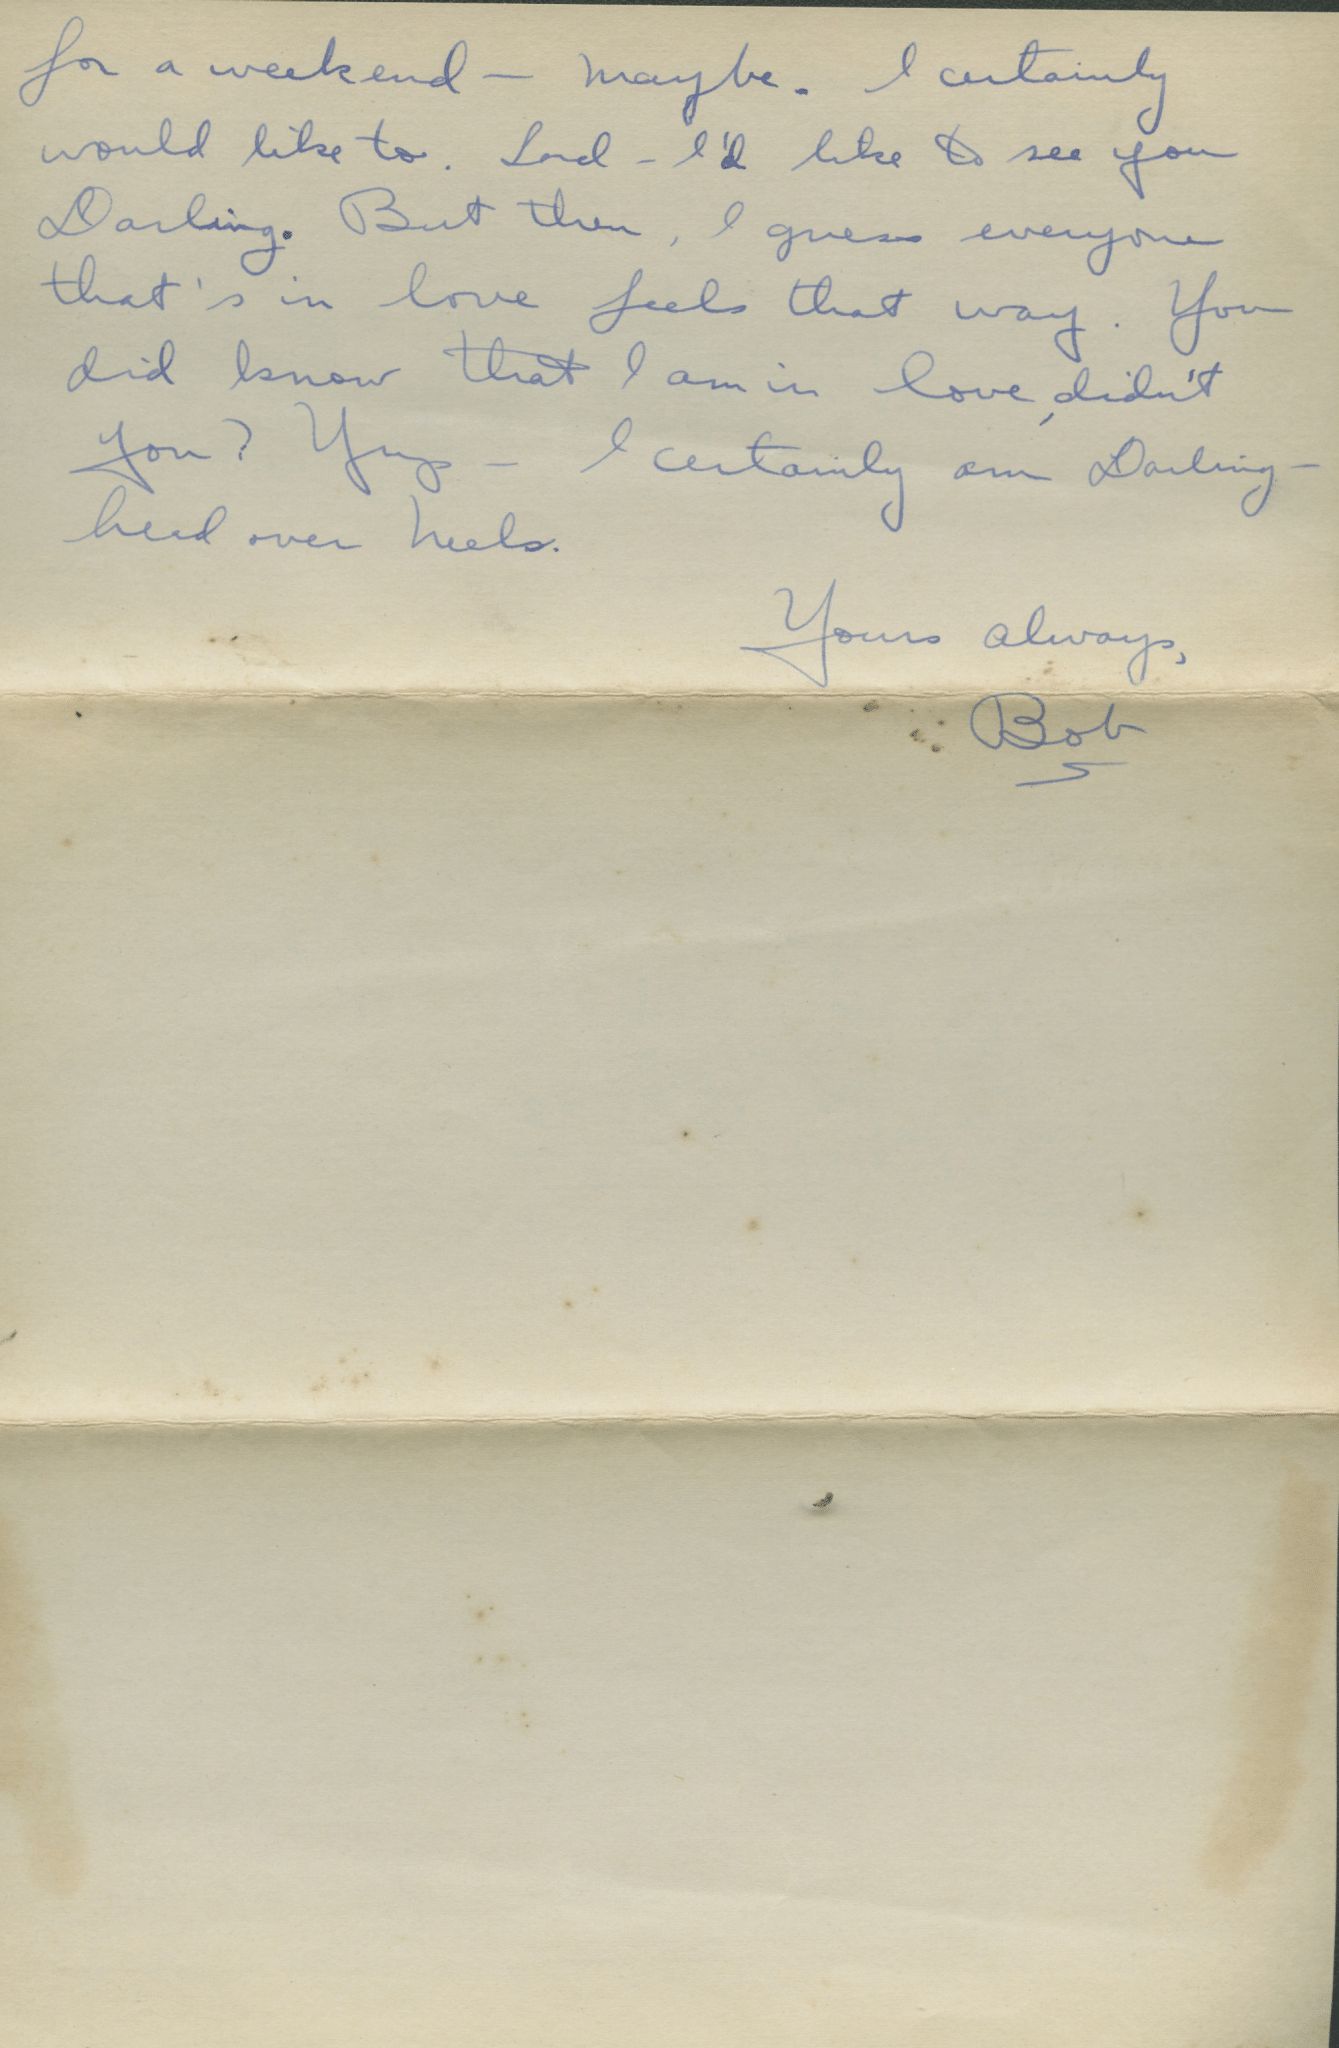 for a weekend - Maybe. I certainly
would like to. Lord - I'd like to see you
Darling. But then, I guess everyone
that's in love feels that way. You
did know that I am in love, didn't
you? Yup - I certainly am Darling -
head over heels.
Yours always,
Bob